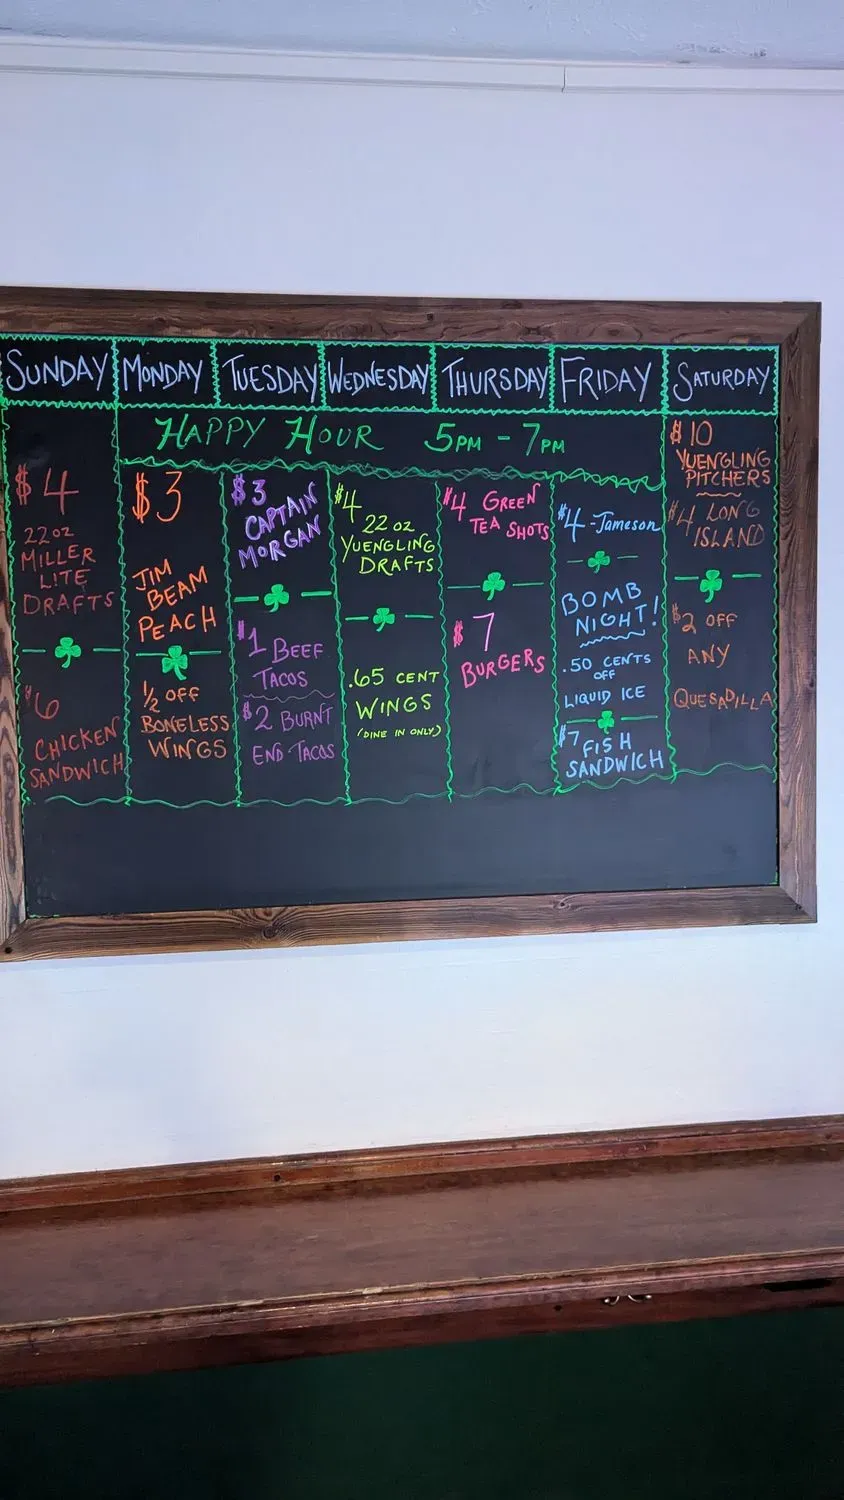 SUNDAY
MONDAY
TUESDAY
WEDNESDAY
THURSDAY
FRIDAY
SATURDAY
HAPPY HOUR 5PM - 7PM
$4
22oz
MILLER
LITE
DRAFTS
$6
CHICKEN
SANDWICH
$3
JIM
BEAM
PEACH
1/2 OFF
BONELESS
WINGS
$3
CAPTAIN
MORGAN
$1 BEEF
TACOS
$2 BURNT
END TACOS
$4
22oz
YUENGLING
DRAFTS
.65 CENT
WINGS
(DINE IN ONLY)
$4 GREEN
TEA SHOTS
$7
BURGERS
$4 -Jameson
BOMB
NIGHT!
.50 CENTS
OFF
LIQUID ICE
$7 FISH
SANDWICH
$10
YUENGLING
PITCHERS
$4 LONG
ISLAND
$2 OFF
ANY
QUESADILLA